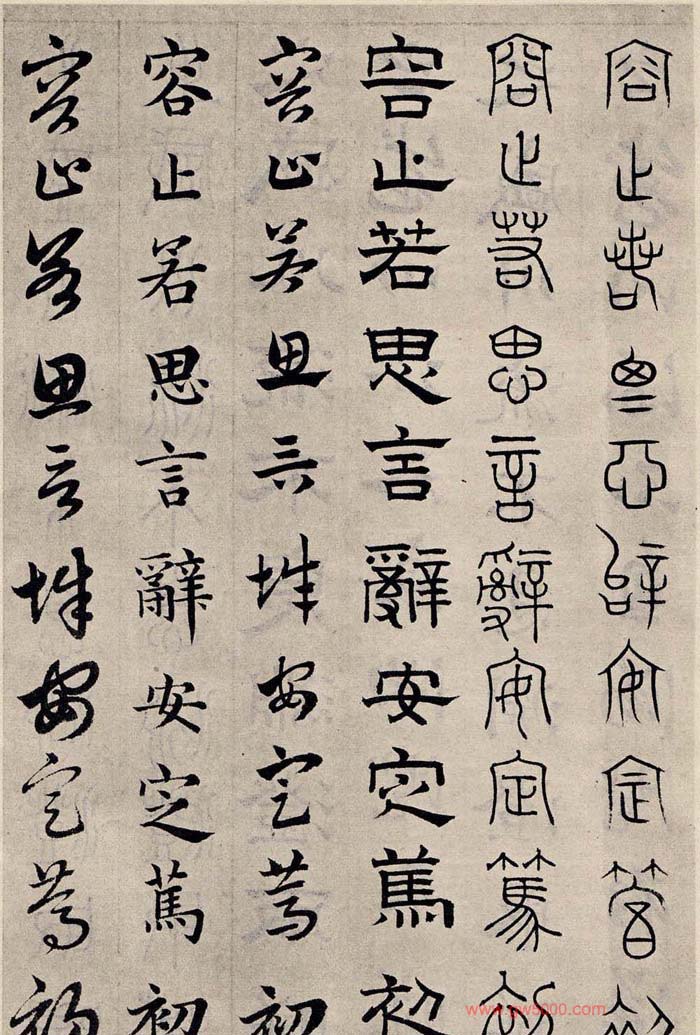 容止若思言辭安定篤初
容止若思言辭安定篤初
容止若思言辭安定篤初
容止若思言辭安定篤初
容止若思言辭安定篤初
容止若思言辭安定篤初
www.gw5000.com